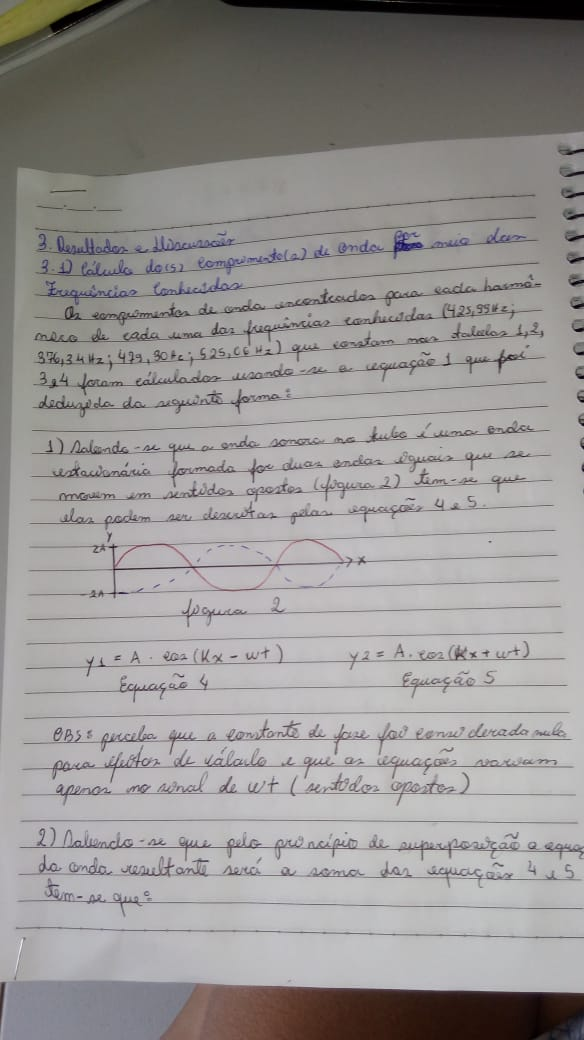 3. Resultados e discussões
3.1) Cálculo do(s) comprimento(s) de onda por meio das
Frequências Conhecidas
Os comprimentos de onda encontrados para cada harmô-
nico de cada uma das frequências conhecidas (425,99Hz;
376,34Hz; 479,90Hz; 525,06Hz) que constam nas tabelas 1,2,
3 e 4 foram cálculados usando-se a equação 1 que foi
deduzida da seguinte forma:
1) Sabendo-se que a onda sonora no tubo é uma onda
estacionária formada por duas ondas iguais que se
movem em sentidos opostos (figura 2) tem-se que
elas podem ser descritas pelas equações 4 e 5.
y
2A
x
-2A
figura 2
y1 = A . cos(Kx - wt) y2 = A . cos(Kx + wt)
Equação 4 Equação 5
OBS: perceba que a constante de fase foi considerada nula
para efeitos de cálculo e que as equações variam
apenas no sinal de wt (sentidos opostos)
2) Sabendo-se que pelo princípio de superposição a equaç
da onda resultante será a soma das equações 4 e 5
tem-se que: